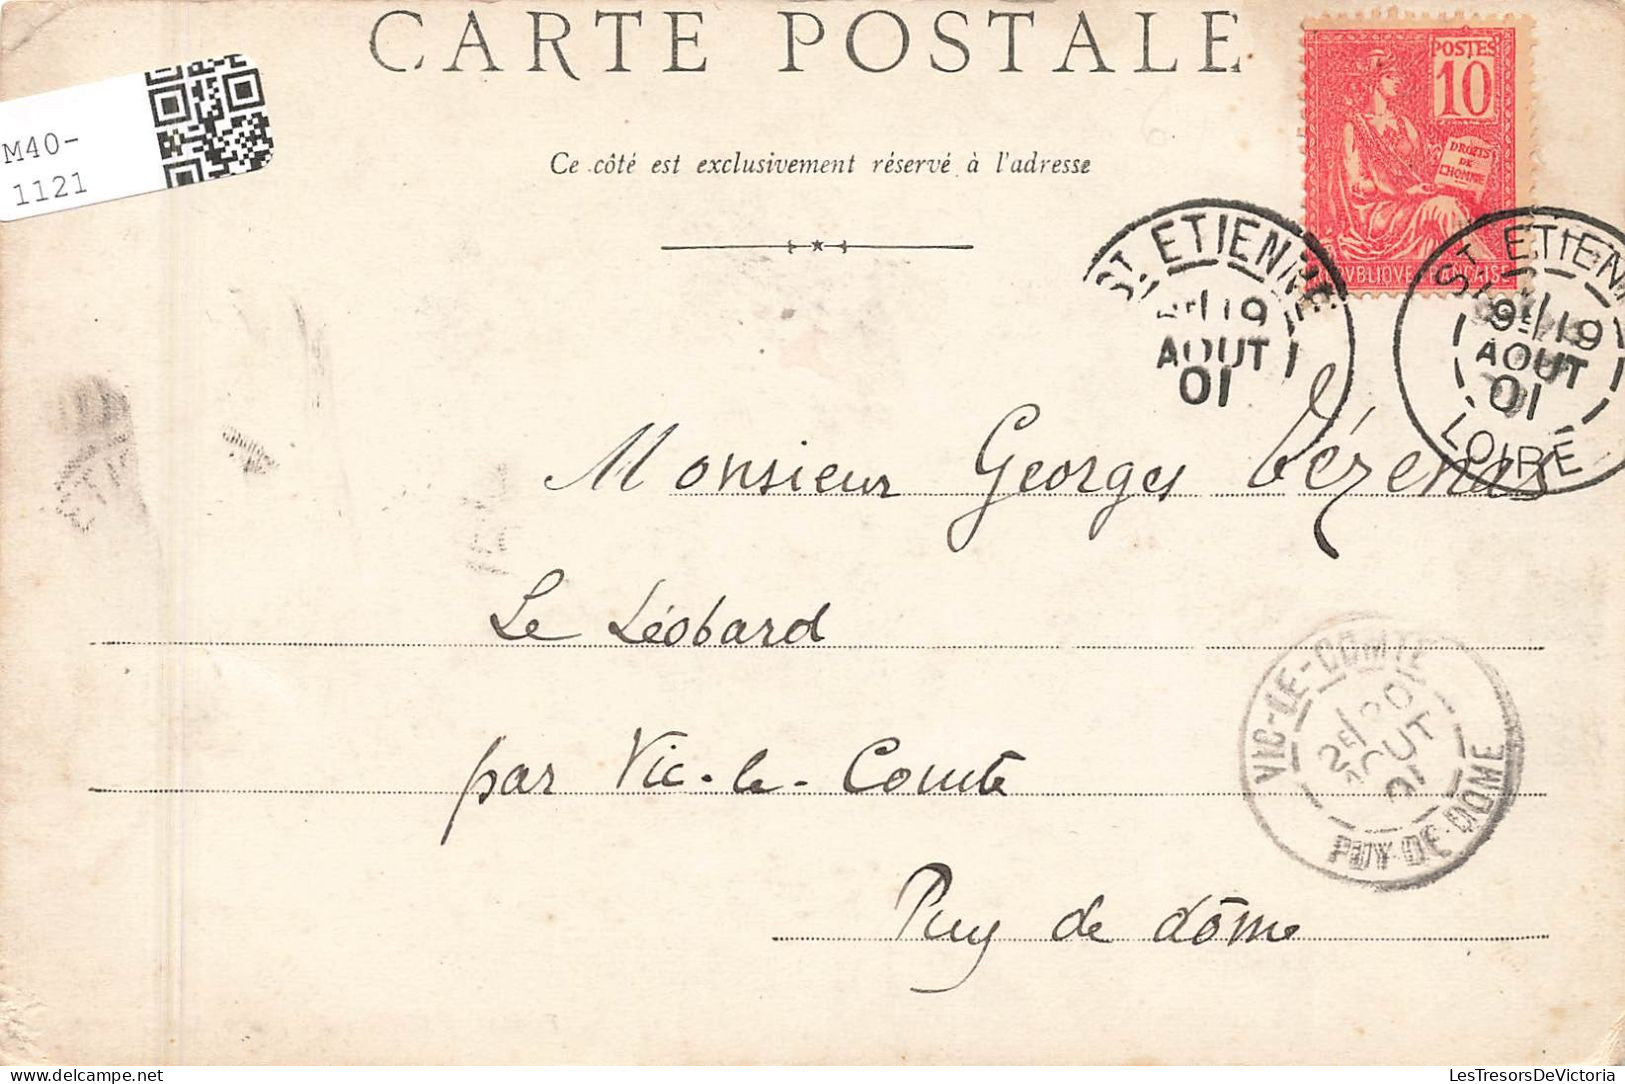 CARTE POSTALE
M40-
1121
Ce côté est exclusivement réservé à l'adresse
POSTES
10
DROITS
DE
L'HOMME
REPVBLIQVE FRANÇAISE
ST ETIENNE
19
AOUT
01
ST ETIENNE
9E/19
AOUT
01
LOIRE
Monsieur Georges Vézenas
Le Léobard
VIC-LE-COMTE
2E/20
AOUT
01
PUY-DE-DOME
par Vic-le-Comte
Puy de dôme
www.LesTresorsDeVictoria.com